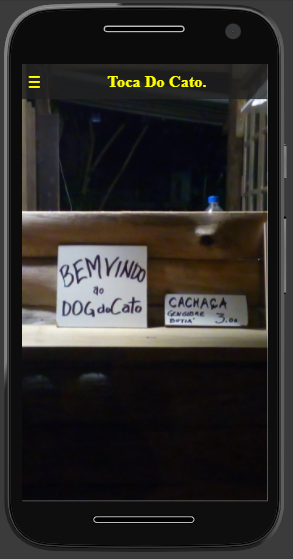 Toca Do Cato.
BEMVINDO
ao
DOG do Cato
CACHAÇA
GENGIBRE
BUTIA 3.00